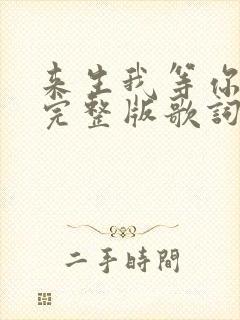 来生我等你
完整版歌詞
二手時間